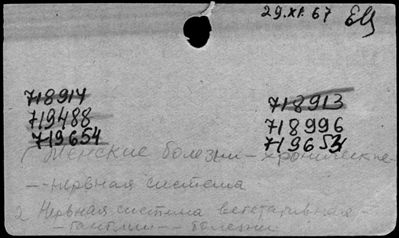 29.XI.67
718917
719488
719654
718913
718996
719653
Женские болезни - хронические -
- - нервная система
2 Нервная система вегетативная -
- ганглии - - болезни